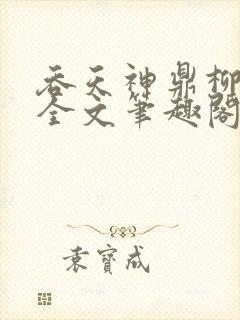 吞天神鼎柳
全文笔趣阁
袁寶成